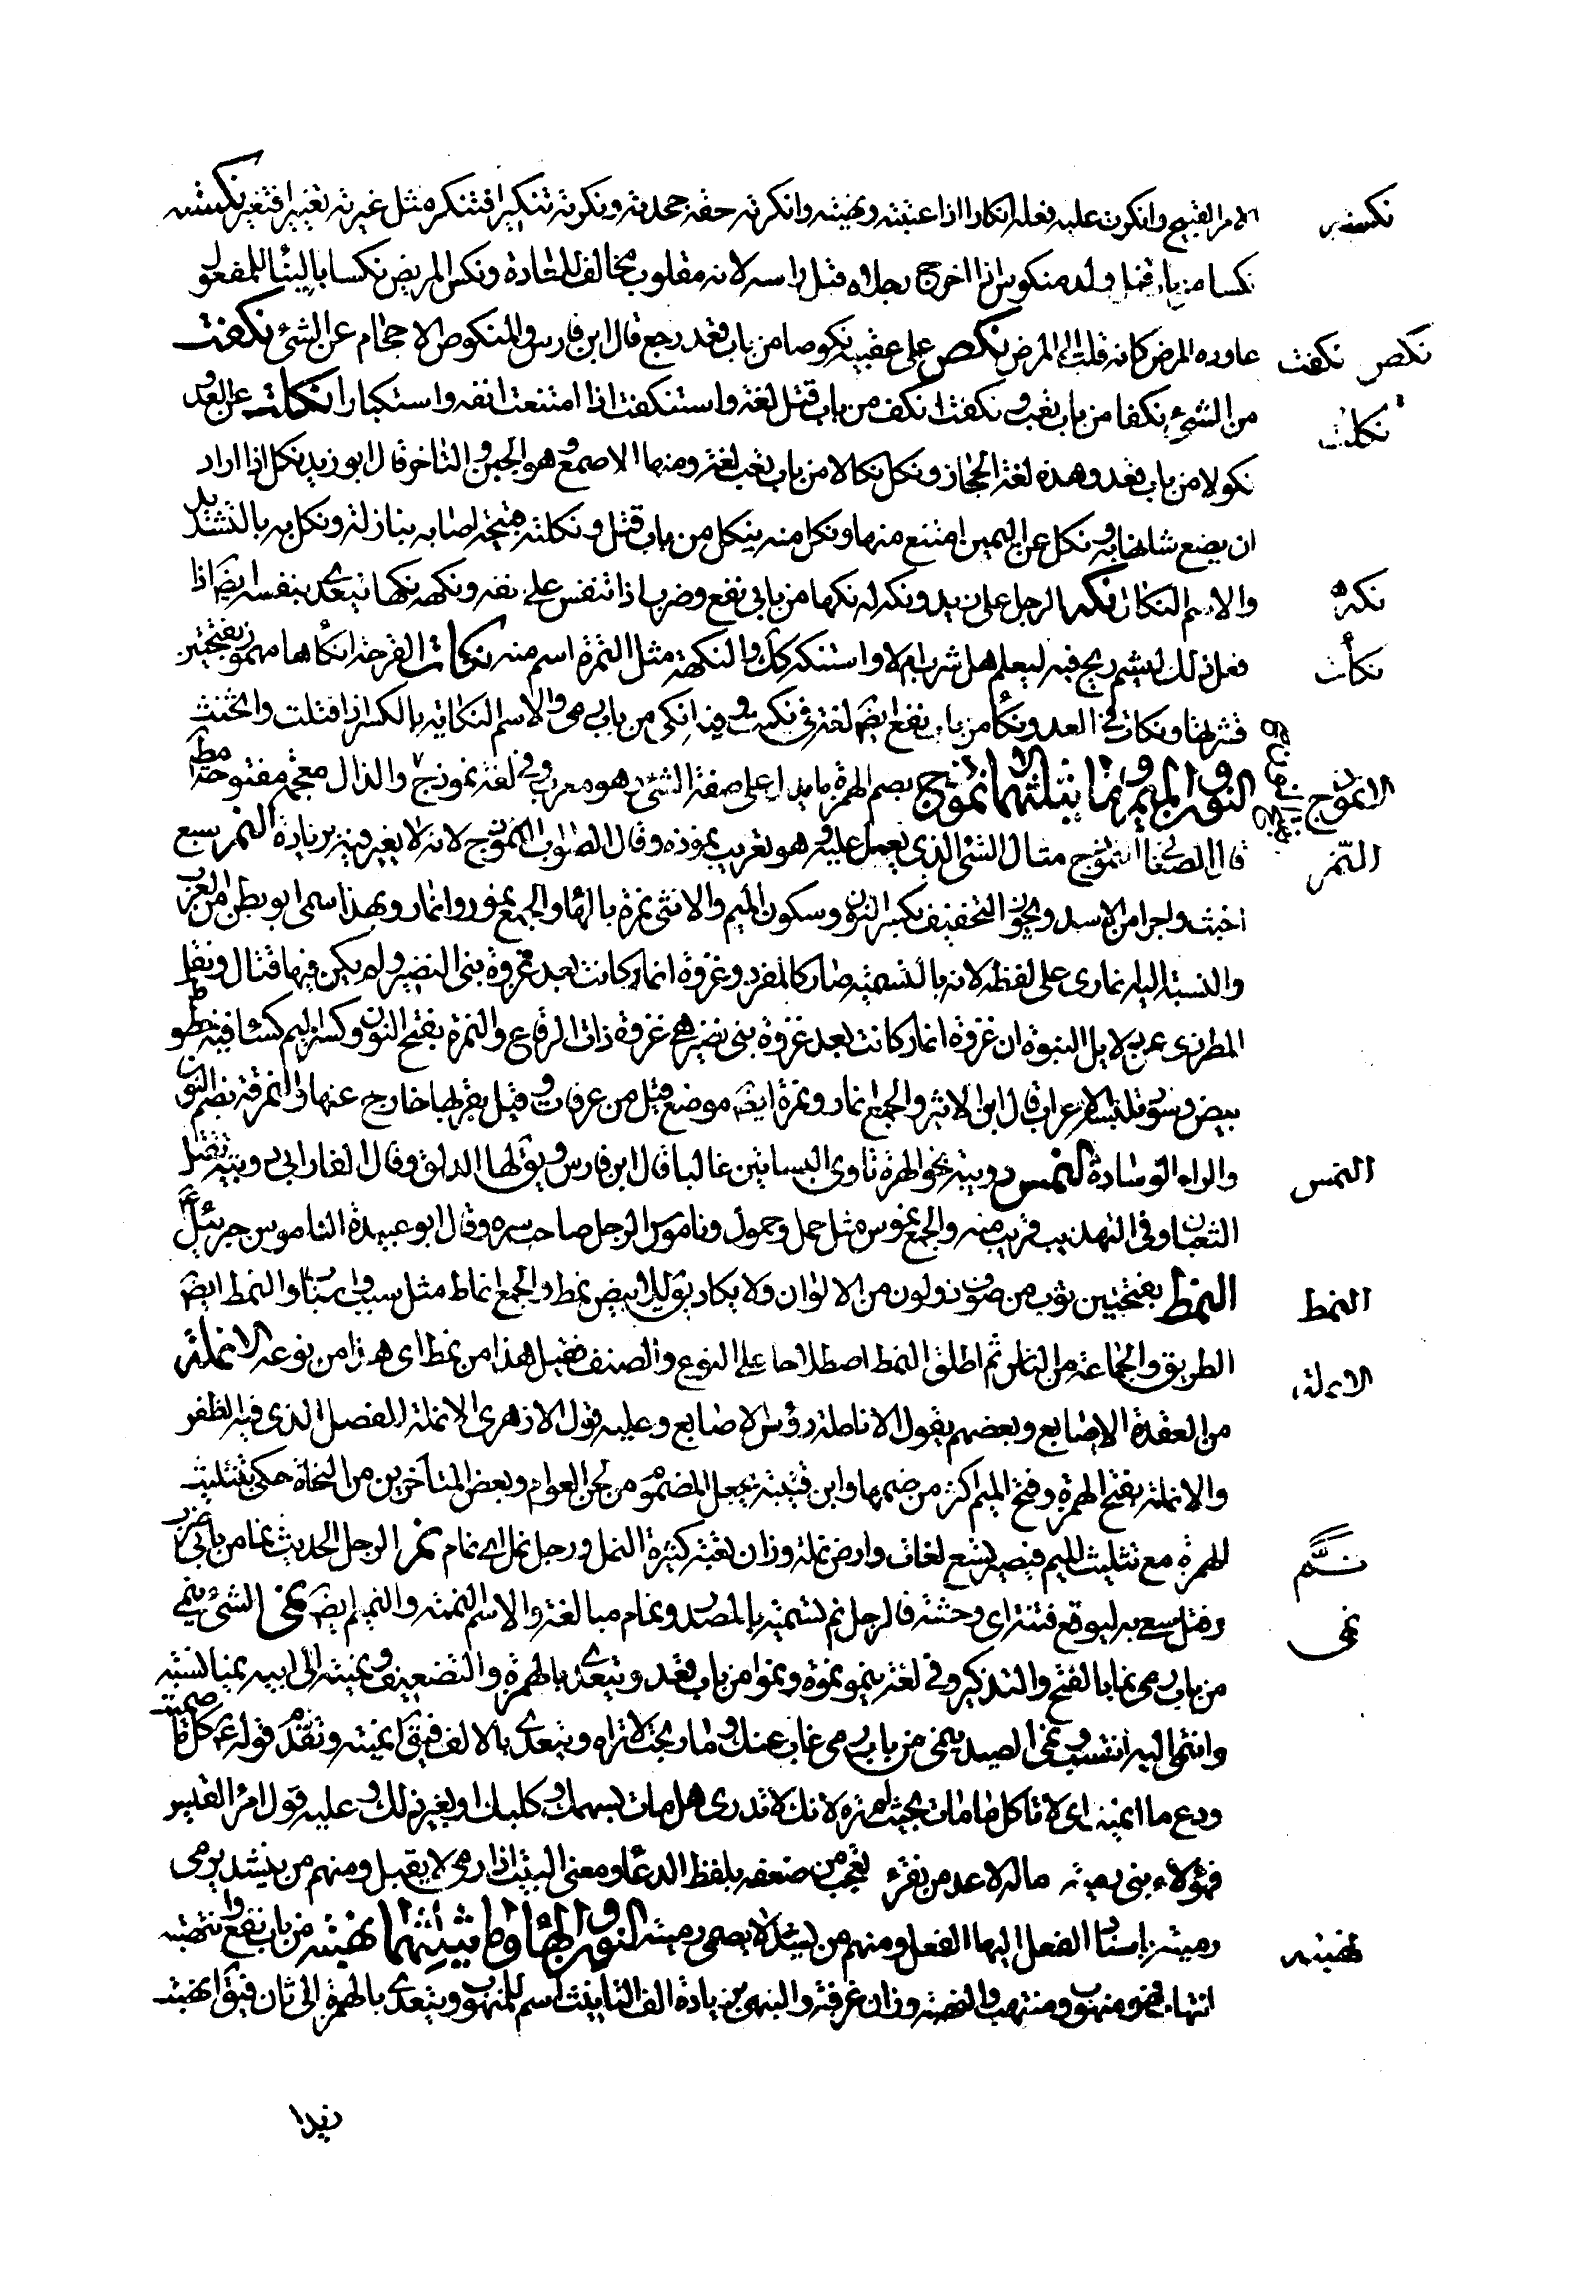 نكسته
الامر القبيح وانكرت عليه فعله انكارا اذا عبته ونهيته وانكرته حقه جحدته ونكرته تنكيرا فتنكر مثل غيرته تغييرا فتغير نكسته
نكسا من باب قتل ولد منكوس اذا اخرج رجلاه قبل راسه لانه مقلوب مخالف للعادة ونكس المريض نكسا بالبناء للمفعول
نكص نكفت
عاوده المرض كانه قلب الى المرض نكص على عقبيه نكوصا من باب قعد رجع قال ابن فارس والنكوص الاحجام عن الشئ نكفت
من الشئ نكفا من باب تعب ونكفت انكف من باب قتل لغة واستنكفت اذا امتنعت انفه واستكبارا نكلت عن العدو
نكلت
نكولا من باب قعد وهذه لغة الحجاز ونكل نكلا من باب تعب لغة ومنعها الاصمعى وهو الجبن والتاخر قال ابو زيد نكل اذا اراد
ان يضع شيا فهابه ونكل عن اليمين امتنع منها ونكل منه ينكل من باب قتل ونكلة قبيحة اصابه بنازلة ونكل به بالتشديد
نكه
والاسم النكال نكه الرجل على زيد ونكه له نكها من بابى نفع وضرب اذا تنفس على انفه ونكهه نكها يتعدى بنفسه ايضا اذا
نكأت
فعل ذلك ليشم ريح فيه ليعلم هل شرب ام لا واستنكه كك والنكهة مثل التمرة اسم منه نكات القرحة انكأها مهموز بفتحتين
قشرتها ونكات فى العدو نكأ من باب نفع ايضا لغة فى نكيت فيه انكى من باب رمى والاسم النكاية بالكسر اذا قتلت واثخنت
الانموذج
النون والميم وما يثلثهما الانموذج بضم الهمزة ما يدل على صفة الشئ وهو معرب وفى لغة نموذج والذال معجمة مفتوحة مطلقا
النمر
قال الصغانى النموذج مثال الشئ الذى يعمل عليه وهو تعريب نموذه وقال الصواب النموذج لانه لا تغيير فيه بزيادة النمر سبع
اخبث واجرا من الاسد ويجوز التخفيف بكسر النون وسكون الميم والانثى نمرة بالهاء والجمع نمور وانمار وبهذا سمى ابو بطن من العرب
والنسبة اليه انمارى على لفظه لانه بالتسمية صار كالمفرد وغزوة انمار كانت بعد غزوة بنى النضير ولم يكن فيها قتال ونقل
المطرزى عن دلايل النبوة ان غزوة انمار كانت بعد غزوة بنى نضير هى غزوة ذات الرقاع والنمرة بفتح النون وكسر الميم كساء فيه خطوط
بيض وسود تلبسه الاعراب قال ابن الاثير والجمع نمار ونمرة ايضا موضع قيل من عرفات وقيل بقربها خارج عنها والنمرقة بضم النون
النمس
والراء الوسادة النمس دويبة نحو الهرة تاوى البساتين غالبا قال ابن فارس ويق لها الدلق وقال الفارابى دويبة تقتل
الثعبان وفى التهذيب قريب منه والجمع نموس مثل حمل وحمول وناموس الرجل صاحب سره وقال ابو عبيدة الناموس جبرئيل
النمط
النمط بفتحتين ثوب من صوف ذو لون من الالوان ولا يكاد يق للابيض نمط والجمع انماط مثل سبب واسباب والنمط ايضا
الطريق والجماعة من الناس ثم اطلق النمط اصطلاحا على النوع والصنف فقيل هذا من نمط اى هذا من نوعه الانملة
الانملة
من العقدة الاصابع وبعضهم يقول الانامل رؤس الاصابع وعليه قول الازهرى الانملة المفصل الذى فيه الظفر
والانملة بفتح الهمزة وفتح الميم اكثر من ضمها وابن قتيبة يجعل المضموم من لحن العوام وبعض المتأخرين من النحاة حكى بتثليث
نمّ
الهمزة مع تثليث الميم فيصير تسع لغات وارض نملة وزان تعبة كثيرة النمل ورجل نمل اى نمام نم الرجل الحديث نما من بابى ضرب
نمى
وقتل سعى به ليوقع فتنة اى وحشة فالرجل نم تسمية بالمصدر ونمام مبالغة والاسم النميمة والنميم ايضا نمى الشئ ينمى
من باب رمى نماء بالفتح والتذكير وفى لغة ينمو نموة ونموا من باب قعد ويتعدى بالهمزة والتضعيف ونميته الى ابيه نميا نسبته
وانتمى اليه انتسب ونمى الصيد ينمى من باب رمى غاب عنك ومات بحيث لا تراه ويتعدى بالالف فيق انميته وتقدم قوله عم كل ما اصميت
ودع ما انميت اى لا تاكل ما مات بحيث لم تره لانك لا تدرى هل مات بسهمك وكلبك او بغير ذلك وعليه قول امرؤ القيس
فهو لا ينمى رميته ماله لا عد من نفره تعجب من ضعفه بلفظ الدعاء ومعنى البيت اذا رمى لا يقبل ومنهم من ينشد يرمى
نهبته
رميته باسناد الفعل اليها الفعل ومنهم من ينشد لا يصمى رميته النون والهاء وما يثلثهما نهبته من باب نفع وانتهبته
انتهابا فهو منهوب ومنتهب والنهبة وزان غرفة والنهبى بزيادة الف التانيث اسم للمنهوب ويتعدى بالهمزة الى ثان فيق انهبت
زيدا